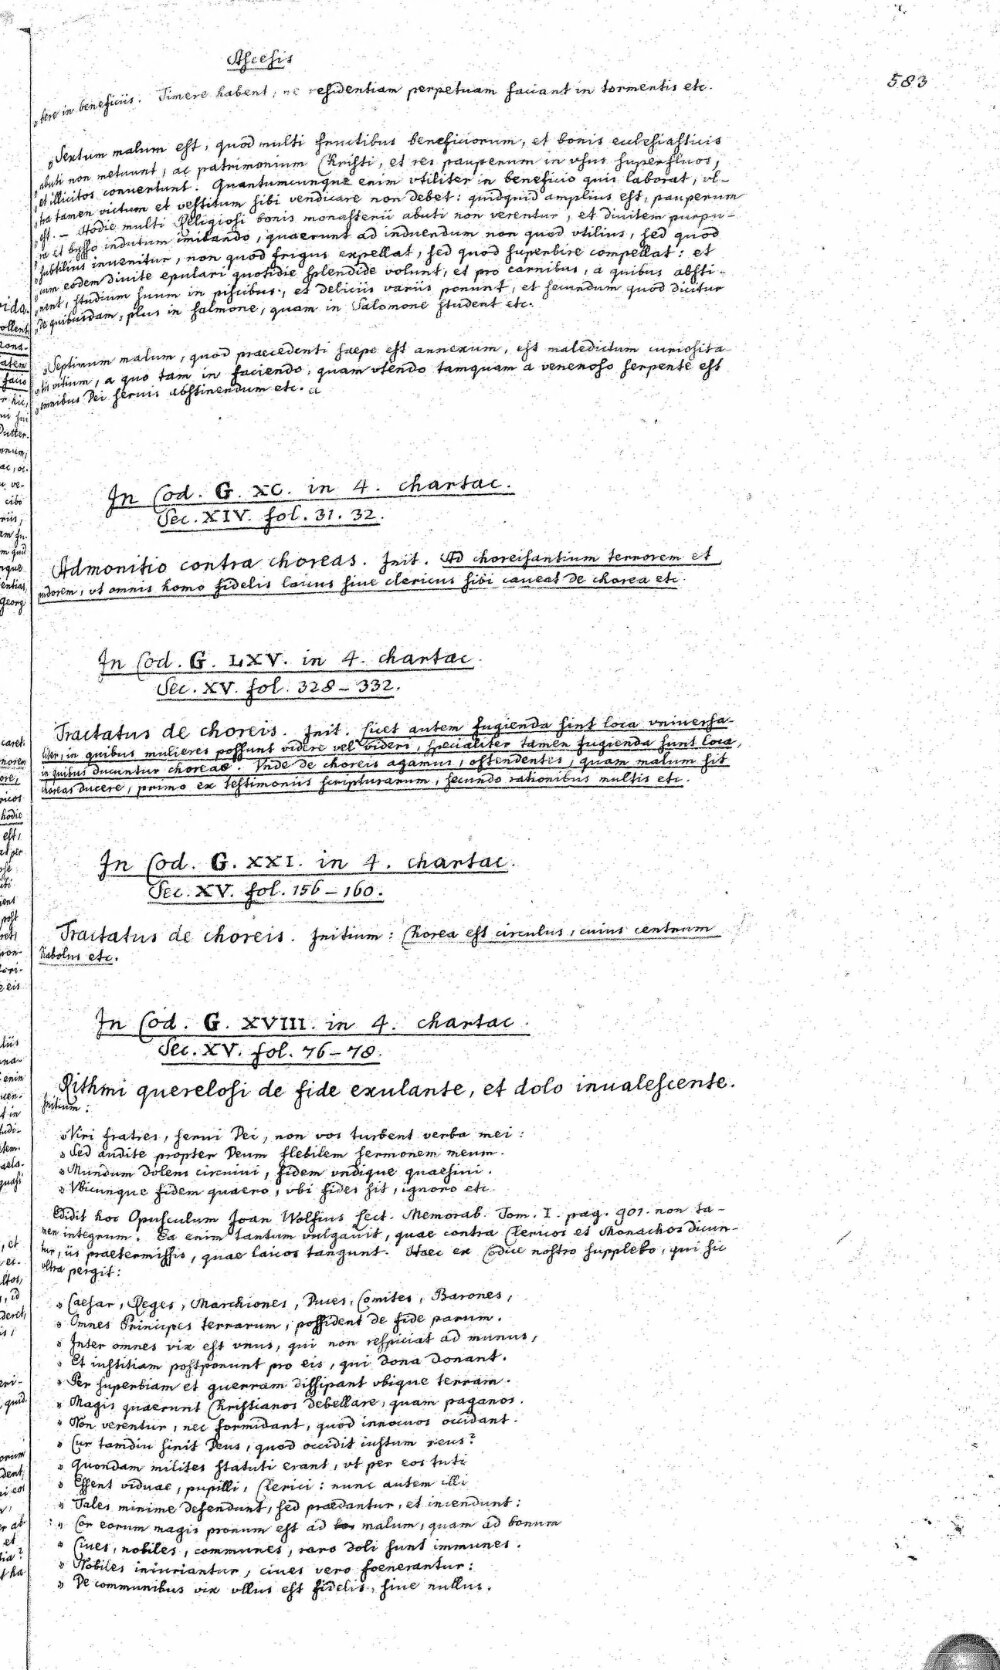 Ascesis
583
bere in beneficiis. Timere habent, ne residentiam perpetuam faciant in tormentis etc.
„Sextum malum est, quod multi fructibus beneficiorum, et bonis ecclesiasticis
„abuti non metuunt, ac patrimonium Christi, et res pauperum in vsus superfluos,
„et illicitos conuertunt. Quantumcunque enim vtiliter in beneficio quis laborat, vl-
„tra tamen victum et vestitum sibi vendicare non debet: quidquid amplius est, pauperum
„est. – Hodie multi Religiosi bonis monasterii abuti non verentur, et diuitem purpu-
„ra et bysso indutum imitando, quaerunt ad induendum non quod vtilius, sed quod
„subtilius inuenitur, non quod frigus expellat, sed quod superbire compellat: et
„cum eodem diuite epulari quotidie splendide volunt, et pro carnibus, a quibus absti-
„nent, studium suum in piscibus, et deliciis variis ponunt, et secundum quod dicitur
„de quibusdam, plus in salmone, quam in Salomone student etc.
„Septimum malum, quod praecedenti saepe est annexum, est maledictum curiosita-
„tis vitium, a quo tam in faciendo, quam vtendo tamquam a venenoso serpente est
„omnibus Dei seruis abstinendum etc. a
In Cod. G. XC. in 4. chartac.
Sec. XIV. fol. 31. 32.
Admonitio contra choreas. Init. Ad choreisantium terrorem et
mdorem, vt omnis homo fidelis laicus siue clericus sibi caueat de chorea etc.
In Cod. G. LXV. in 4. chartac.
Sec. XV. fol. 328 – 332.
Tractatus de choreis. Init. Licet autem fugienda sint loca vniuersa-
liter, in quibus mulieres possunt videre vel videri, specialiter tamen fugienda sunt loca,
in quibus ducuntur choreae. Vnde de choreis agamus, ostendentes, quam malum sit
choreas ducere, primo ex testimoniis scripturarum, secundo rationibus multis etc.
In Cod. G. XXI. in 4. chartac.
Sec. XV. fol. 156 – 160.
Tractatus de choreis. Initium: Chorea est circulus, cuius centrum
diabolus etc.
In Cod. G. XVIII. in 4. chartac.
Sec. XV. fol. 76 – 78.
Rithmi querelosi de fide exulante, et dolo inualescente.
Initium:
„Viri fratres, serui Dei, non vos turbent verba mei:
„Sed audite propter Deum flebilem sermonem meum.
„Mundum dolens circuiui, fidem vndique quaesiui.
„Vbicunque fidem quaero, vbi fides sit, ignoro etc.
Edidit hoc Opusculum Joan Wolfius Lect. Memorab. Tom. I. pag. 901. non ta-
men integrum. Ea enim tantum vulgauit, quae contra Clericos et Monachos dicun-
tur, iis praetermissis, quae laicos tangunt. Haec ex Codice nostro supplebo, qui sic
vltra pergit:
„Caesar, Reges, Marchiones, Duces, Comites, Barones,
„Omnes Principes terrarum, possident de fide parum.
„Inter omnes vix est vnus, qui non respiciat ad munus,
„Et iustitiam postponunt pro eis, qui dona donant.
„Per superbiam et guerram dissipant vbique terram.
„Magis quaerunt Christianos debellare, quam paganos.
„Non verentur, nec formidant, quod innocuos occidant.
„Cur tamdiu sinit Deus, quod occidit iustum reus?
„Quondam milites statuti erant, vt per eos tuti
„Essent viduae, pupilli, Clerici: nunc autem illi
„Tales minime defendunt, sed praedantur, et incendunt:
„Cor eorum magis pronum est ad malum, quam ad bonum
„Ciues, nobiles, communes, raro doli sunt immunes.
„Nobiles iniuriantur, ciues vero foenerantur:
„De communibus vix vllus est fidelis, siue nullus.